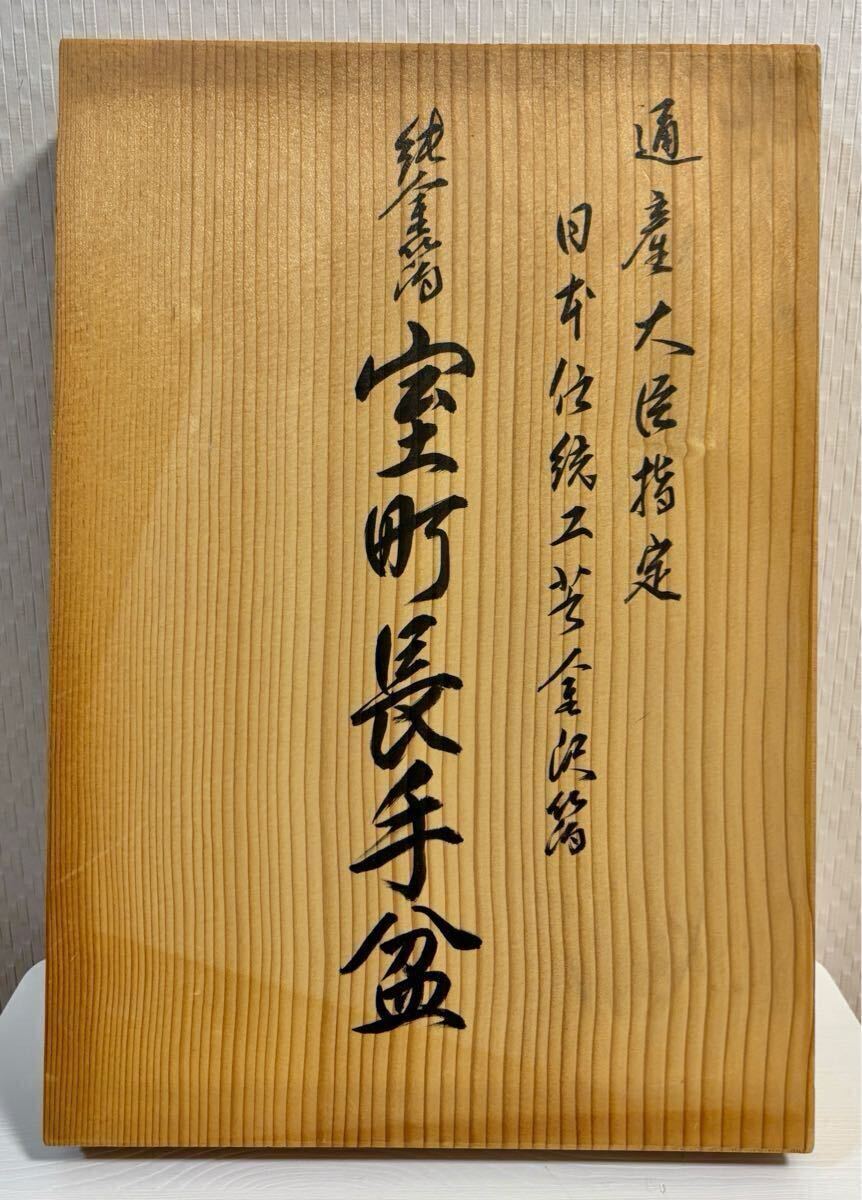 通産大臣指定
日本伝統工芸金沢箔
純金箔 室町長手盆